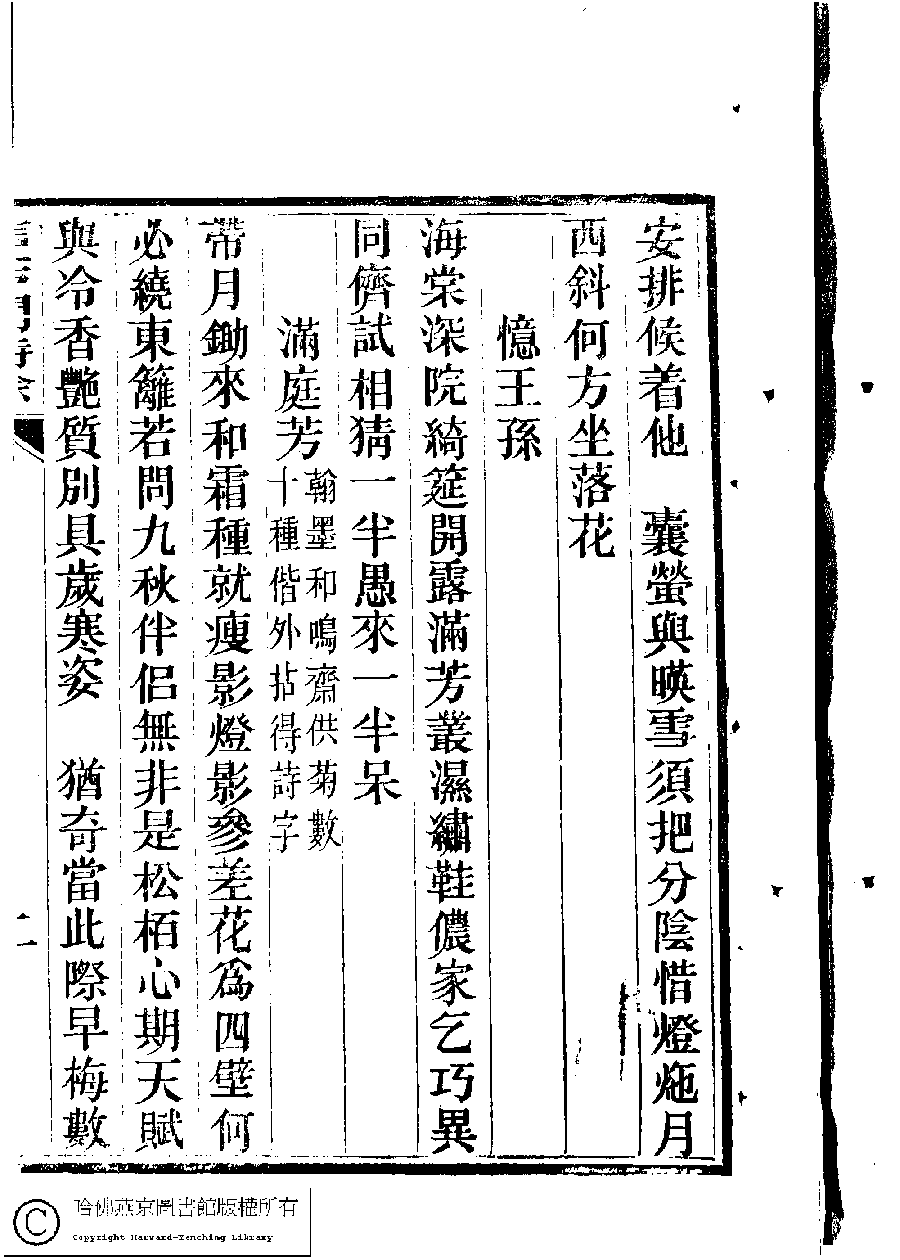 安排候着他　囊螢與暎雪須把分陰惜燈灺月
西斜何方坐落花
憶王孫
海棠深院綺筵開露滿芳叢濕繡鞋儂家乞巧異
同儕試相猜一半愚來一半呆
滿庭芳 翰墨和鳴齋供菊數
十種偕外拈得詩字
帶月鋤來和霜種就瘦影燈影參差花爲四壁何
必繞東籬若問九秋伴侶無非是松栢心期天賦
與冷香艷質別具歲寒姿　猶奇當此際早梅數
哈佛燕京圖書館版權所有
Copyright Harvard-Yenching Library